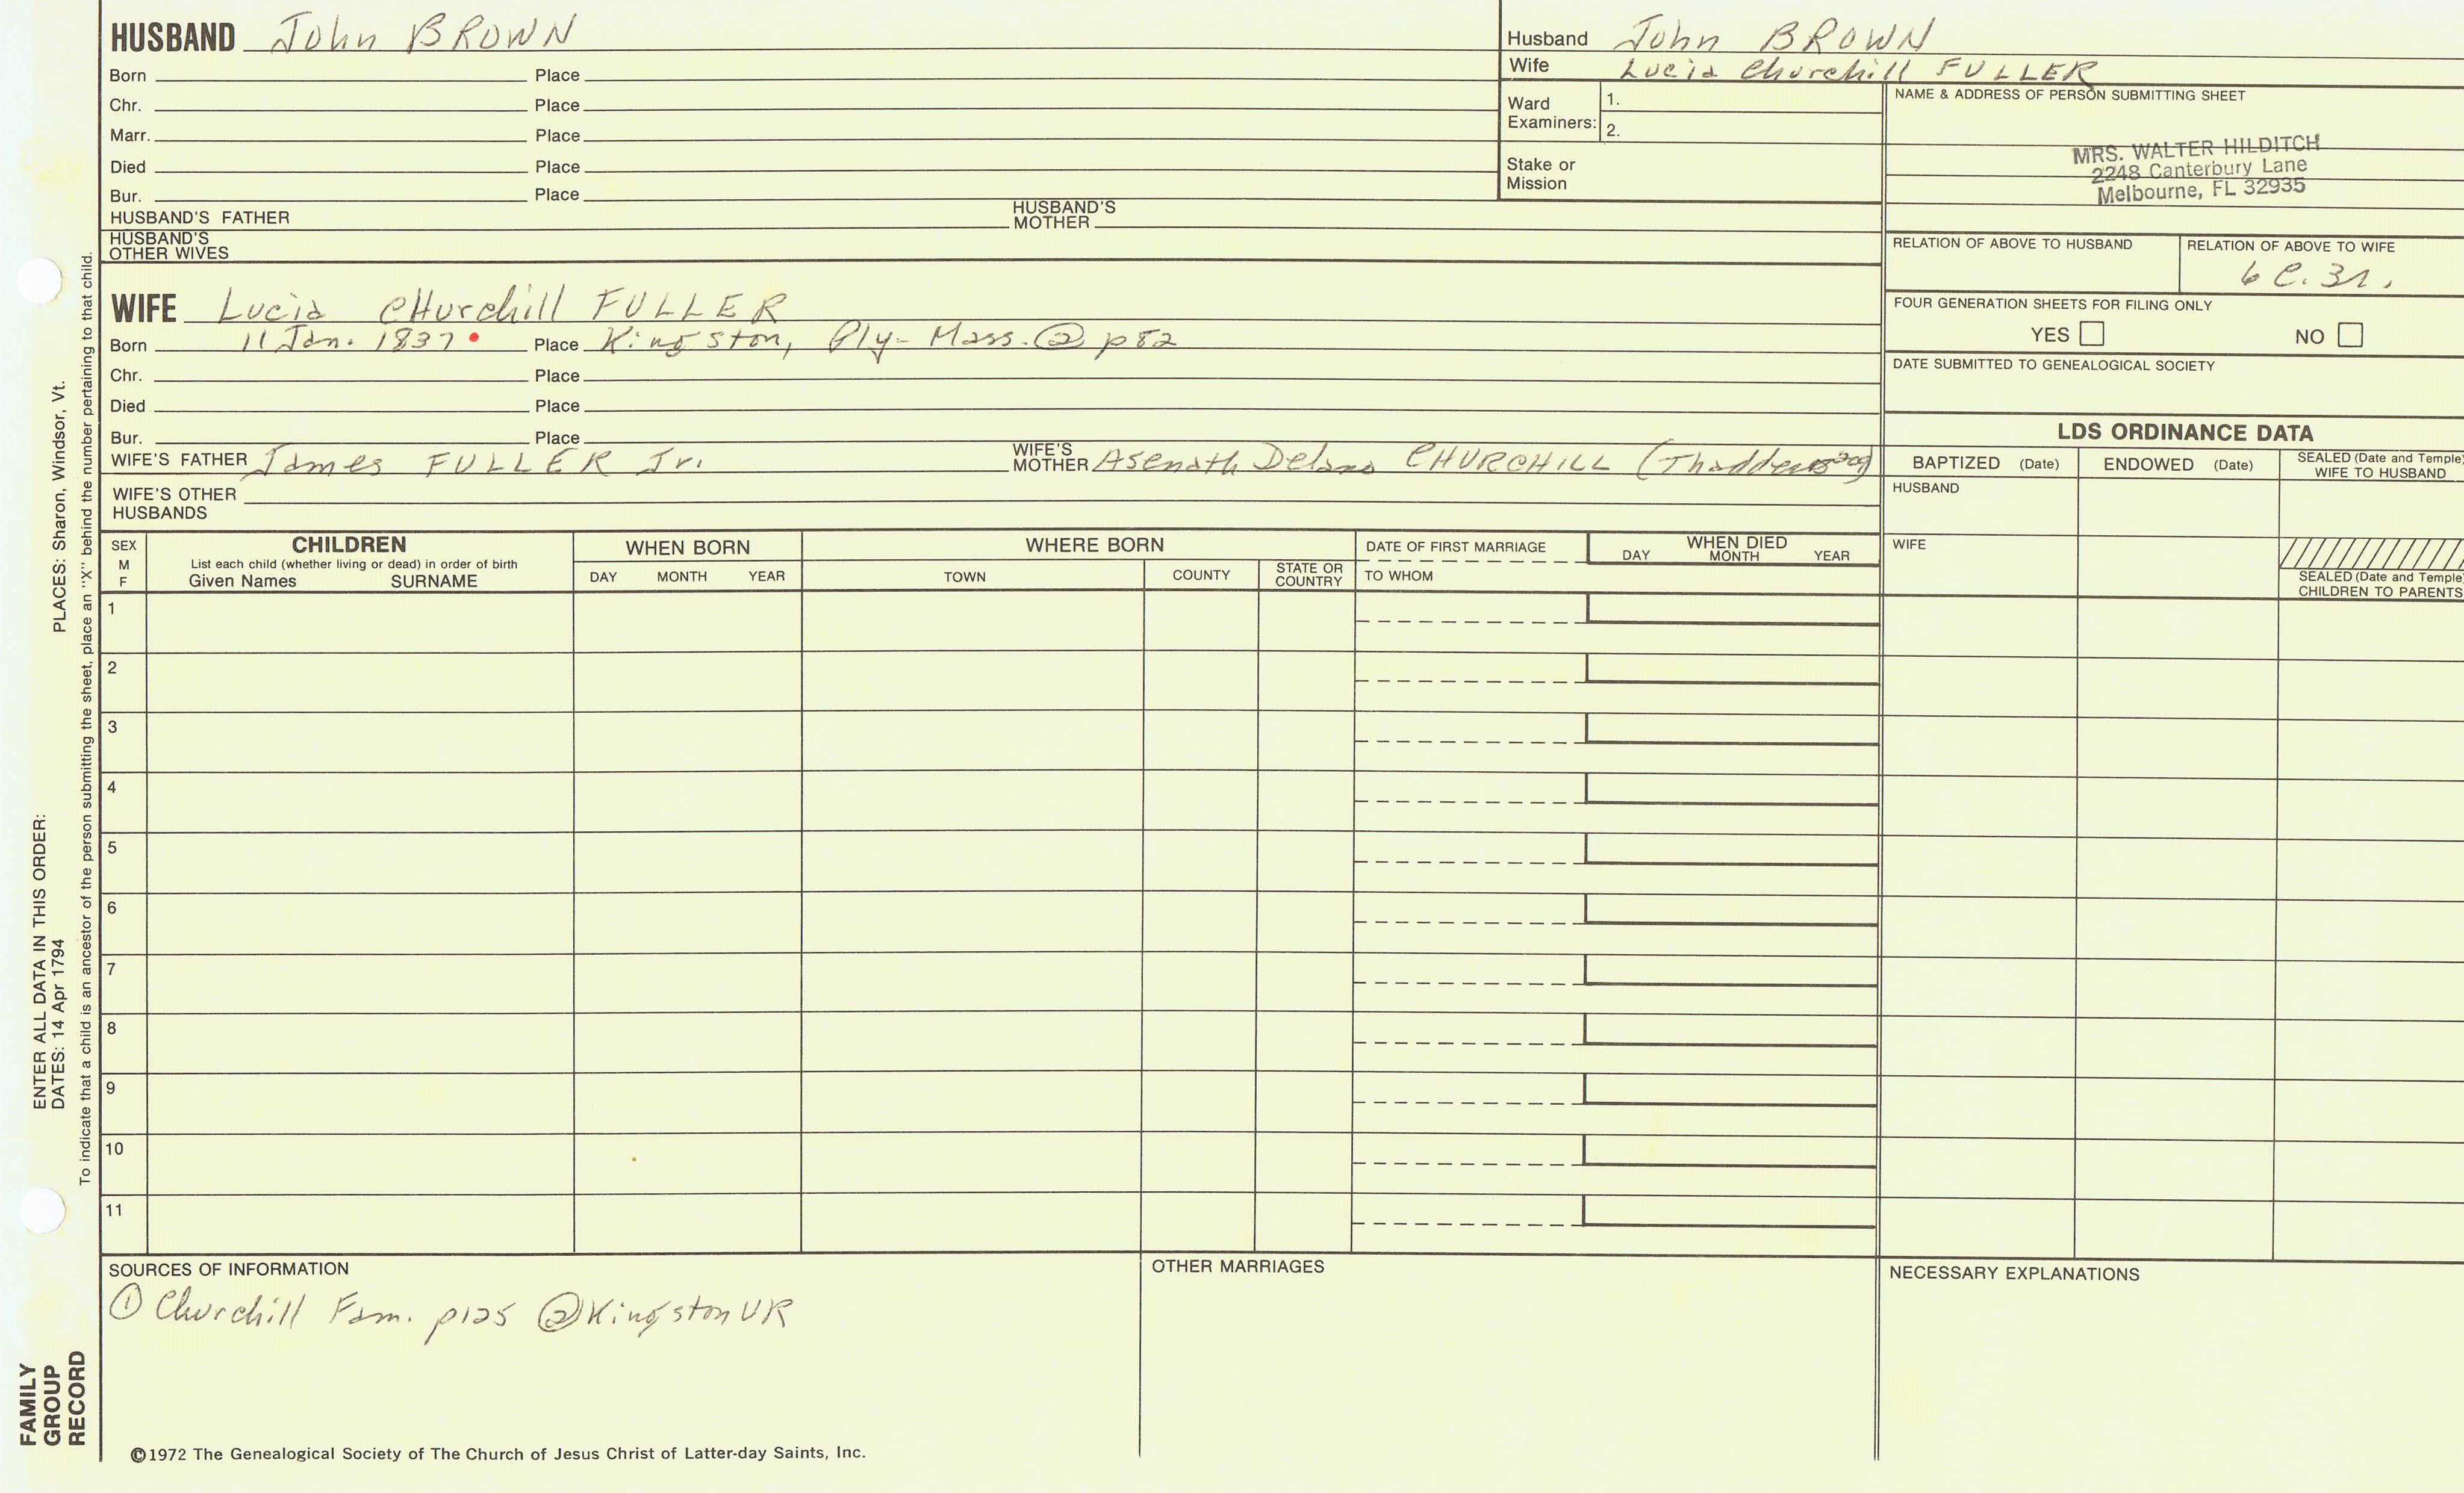 HUSBAND John BROWN
Born Place
Chr. Place
Marr. Place
Died Place
Bur. Place
HUSBAND'S FATHER HUSBAND'S MOTHER
HUSBAND'S OTHER WIVES
Husband John BROWN
Wife Lucia Churchill FULLER
Ward Examiners: 1.
2.
Stake or Mission
NAME & ADDRESS OF PERSON SUBMITTING SHEET
MRS. WALTER HILDITCH
2248 Canterbury Lane
Melbourne, FL 32935
RELATION OF ABOVE TO HUSBAND RELATION OF ABOVE TO WIFE
6 C. 3r.
FOUR GENERATION SHEETS FOR FILING ONLY
YES NO
DATE SUBMITTED TO GENEALOGICAL SOCIETY
WIFE Lucia CHurchill FULLER
Born 11 Jan. 1837 Place Kingston, Ply- Mass. ② p82
Chr. Place
Died Place
Bur. Place
WIFE'S FATHER James FULLER Jr. WIFE'S MOTHER Asenath Delano CHURCHILL (Thaddeus
WIFE'S OTHER HUSBANDS
LDS ORDINANCE DATA
BAPTIZED (Date) ENDOWED (Date) SEALED (Date and Temple) WIFE TO HUSBAND
HUSBAND
WIFE
SEALED (Date and Temple) CHILDREN TO PARENTS
SEX M F CHILDREN WHEN BORN WHERE BORN DATE OF FIRST MARRIAGE WHEN DIED
List each child (whether living or dead) in order of birth
Given Names SURNAME DAY MONTH YEAR TOWN COUNTY STATE OR COUNTRY TO WHOM DAY MONTH YEAR
1
2
3
4
5
6
7
8
9
10
11
SOURCES OF INFORMATION OTHER MARRIAGES NECESSARY EXPLANATIONS
① Churchill Fam. p125 ② Kingston VR
©1972 The Genealogical Society of The Church of Jesus Christ of Latter-day Saints, Inc.
FAMILY GROUP RECORD
ENTER ALL DATA IN THIS ORDER:
DATES: 14 Apr 1794 PLACES: Sharon, Windsor, Vt.
To indicate that a child is an ancestor of the person submitting the sheet, place an "X" behind the number pertaining to that child.